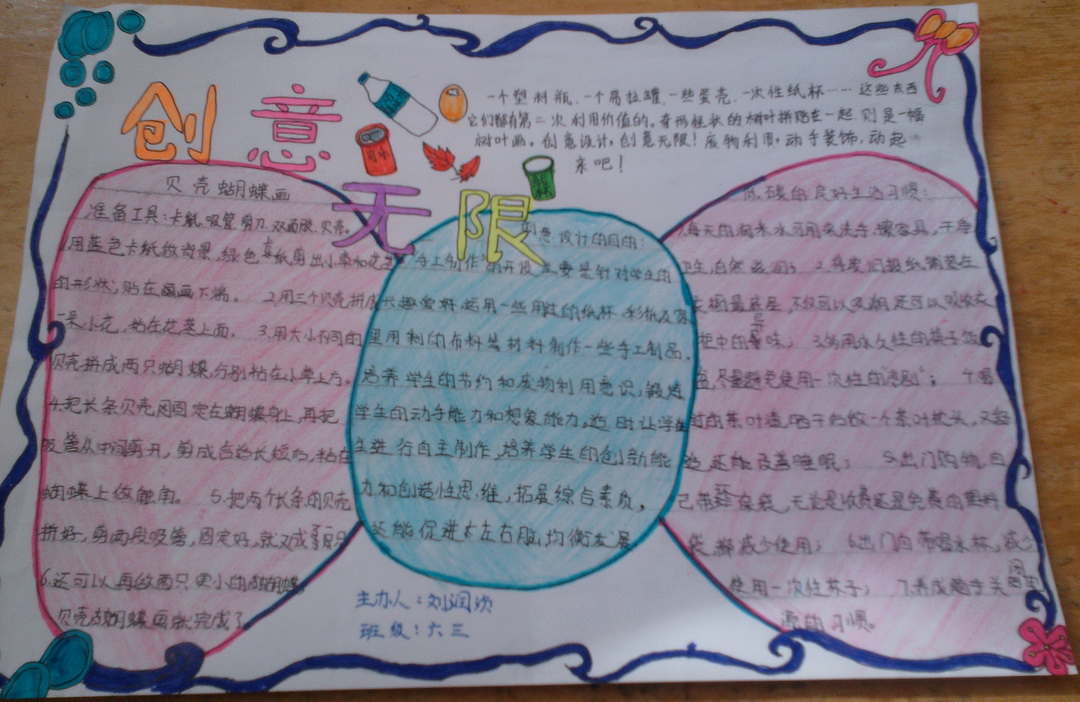 创意
无限
一个塑料瓶、一个易拉罐、一些蛋壳、一次性纸杯……这些东西
它们都有第二次利用价值的。奇形怪状的树叶拼贴在一起,则是一幅
树叶画。创意设计,创意无限!废物利用,动手装饰,动起
来吧!
可乐
贝壳蝴蝶画
准备工具:卡纸、吸管、剪刀、双面胶、贝壳。
1.用蓝色卡纸做背景,绿色卡纸剪出小草和花茎
的形状,贴在画面下端。 2.用三个贝壳拼成
一朵小花,粘在花茎上面。 3.用大小不同的
贝壳拼成两只蝴蝶分别粘在小草上方。
4.把长条贝壳固定在蝴蝶身上,再把
吸管从中间剪开,剪成合适长短的,粘在
蝴蝶上做触角。 5.把两个长条的贝壳
拼好,剪两段吸管,固定好,就又成了
6.还可以再做两只更小的蝴蝶,
贝壳蝴蝶画就完成了
创意设计的目的:
手工制作的开设主要是针对学生的
兴趣爱好,运用一些用过的纸杯、彩纸及家
里用剩的布料等材料制作一些手工制品。
培养学生的节约和废物利用意识,锻炼
学生的动手能力和想象能力。适时让学
生进行自主制作,培养学生的创新能
力和创造性思维,拓展综合素质,
还能促进大左右脑均衡发展
低碳的良好生活习惯:
1.每天的淘米水可用来洗手、擦家具,干净
卫生,自然滋润; 2.将废旧报纸铺垫在
衣橱最底层,不仅可以吸潮,还可以吸收衣
柜中的异味; 3.尚用永久性的筷子、饭
盒,尽量避免使用一次性的"餐具"; 4.喝
过的茶叶渣,晒干后做一个茶叶枕头,又舒
适,还能改善睡眠; 5.出门购物,自
己带环保袋,无论是收费还是免费的塑料
袋,都减少使用; 6.出门自带喝水杯,减少
使用一次性杯子; 7.养成随手关闭电
源的习惯。
主办人:刘润
班级:六三